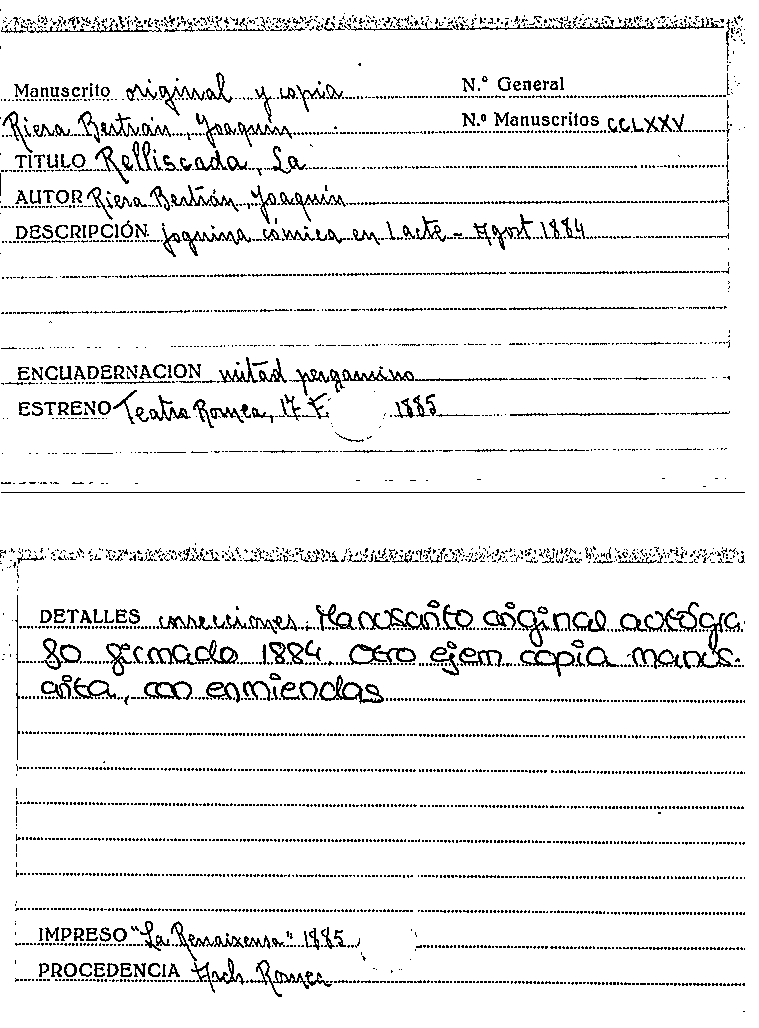 Manuscrito original y copia N.° General
Riera Bertrán, Joaquín N.° Manuscritos CCLXXV
TÍTULO Relliscada, La
AUTOR Riera Bertrán, Joaquín
DESCRIPCIÓN joguina cómica en 1 acte - Agost 1884
ENCUADERNACION mitad pergamino
ESTRENO Teatro Romea, 17 F. 1885
DETALLES correcciones. Manuscrito original autógra
fo firmado 1884. Otro ejem. copia manus-
crita, con enmiendas
IMPRESO "La Renaixensa" 1885
PROCEDENCIA Arch. Romea